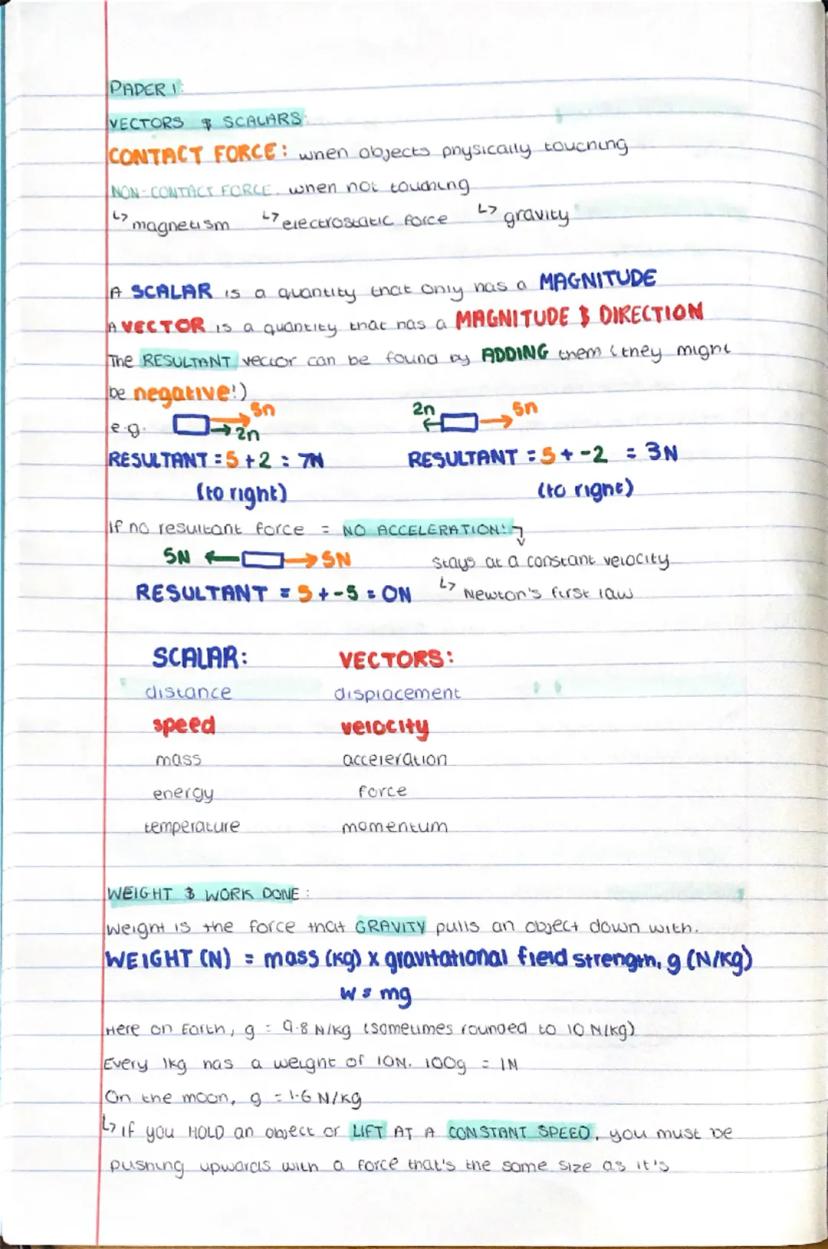 PAPER 1:
VECTORS & SCALARS:
CONTACT FORCE: when objects physically touching
NON-CONTACT FORCE: when not touching
↳ magnetism ↳ electrostatic force ↳ gravity
A SCALAR is a quantity that only has a MAGNITUDE
A VECTOR is a quantity that has a MAGNITUDE & DIRECTION
The RESULTANT vector can be found by ADDING them (they might
be negative!)
e.g. 5n 2n 2n 5n
RESULTANT = 5 + 2 = 7N RESULTANT = 5 + -2 = 3N
(to right) (to right)
If no resultant force = NO ACCELERATION!
5N 5N stays at a constant velocity
RESULTANT = 5 + -5 = 0N ↳ Newton's first law
SCALAR: VECTORS:
distance displacement
speed velocity
mass acceleration
energy force
temperature momentum
WEIGHT & WORK DONE:
Weight is the force that GRAVITY pulls an object down with.
WEIGHT (N) = mass (kg) x gravitational field strength, g (N/kg)
W = mg
Here on Earth, g = 9.8 N/kg (sometimes rounded to 10 N/kg)
Every 1kg has a weight of 10N. 100g = 1N
On the moon, g = 1.6 N/kg
↳ If you HOLD an object or LIFT AT A CONSTANT SPEED, you must be
pushing upwards with a force that's the same size as it's